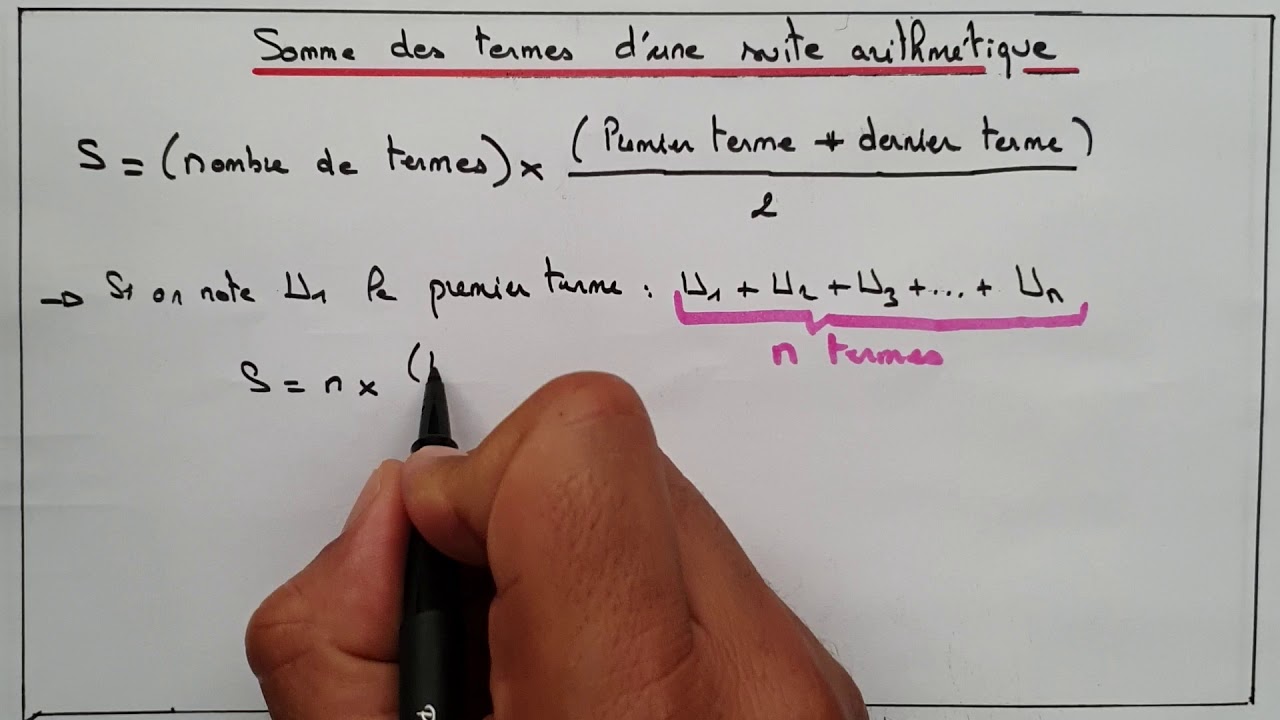 Somme des termes d'une suite arithmétique
S = (nombre de termes) × (Premier terme + dernier terme) / 2
→ Si on note U₁ le premier terme : U₁ + U₂ + U₃ + ... + Uₙ
n termes
S = n × (